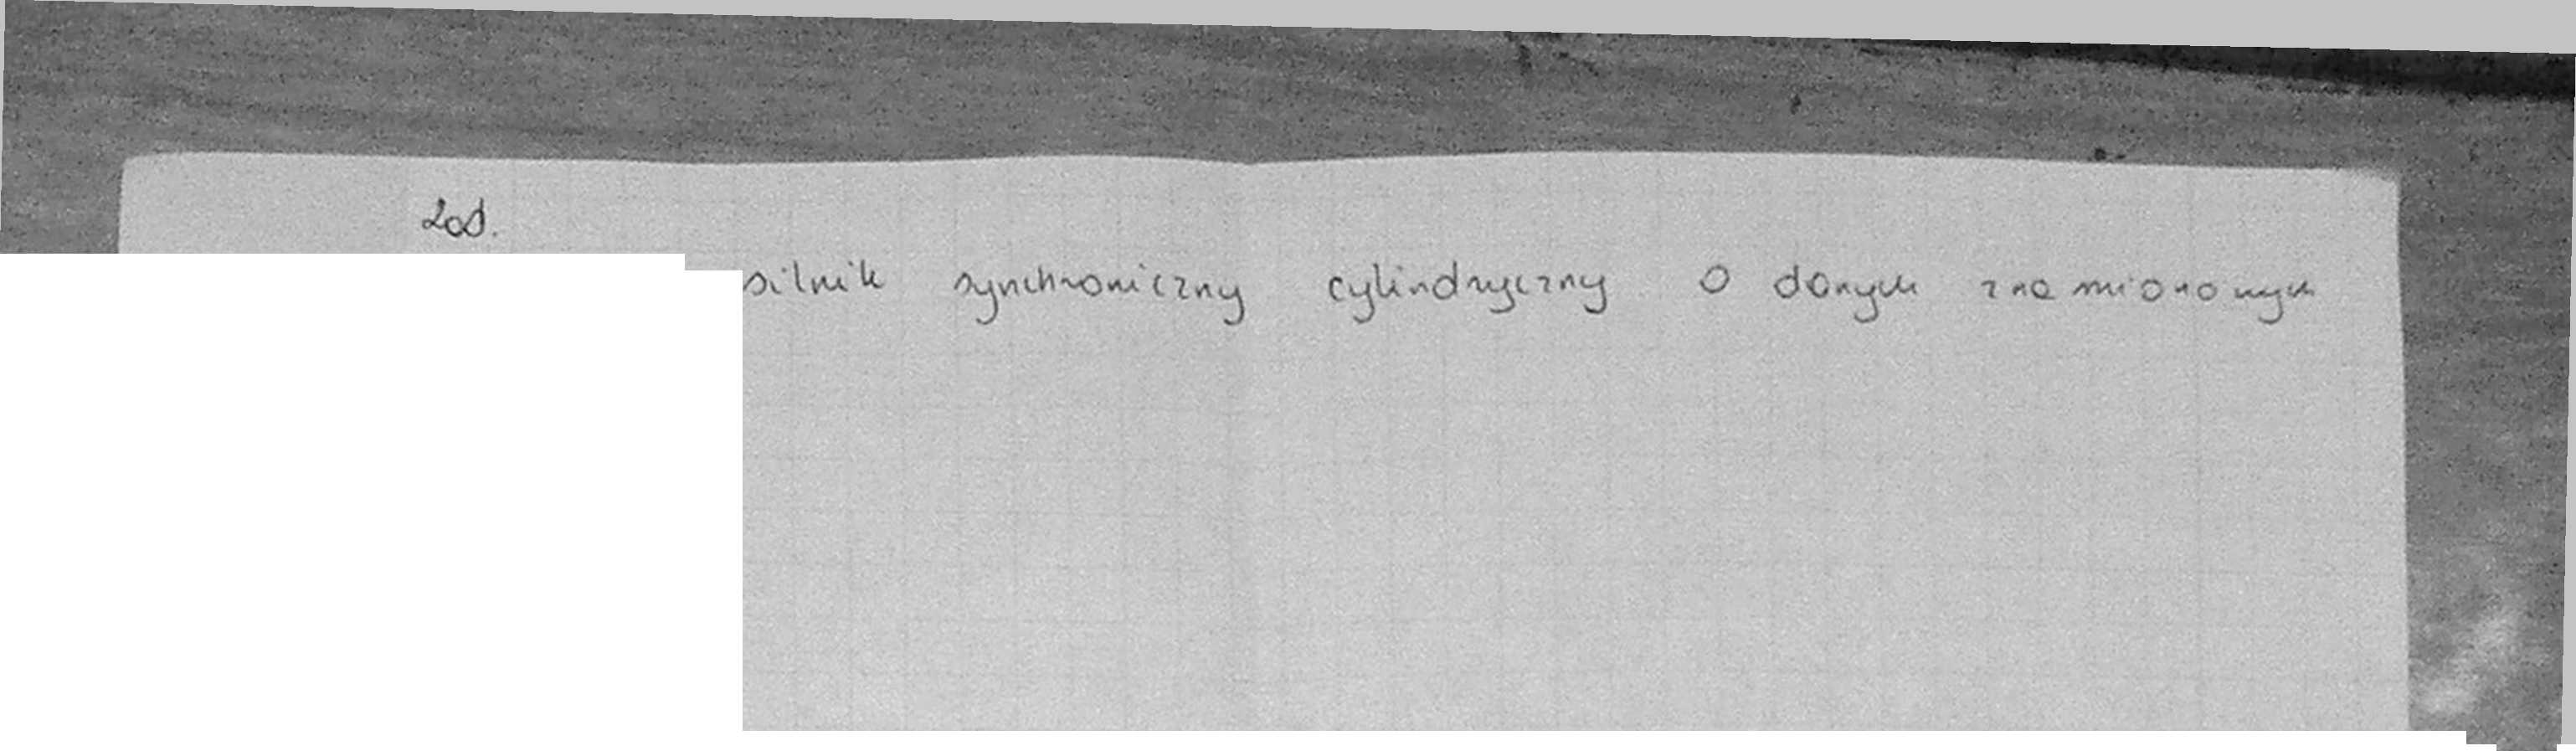 Zad.
silnik synchroniczny cylindryczny o danych znamionowych